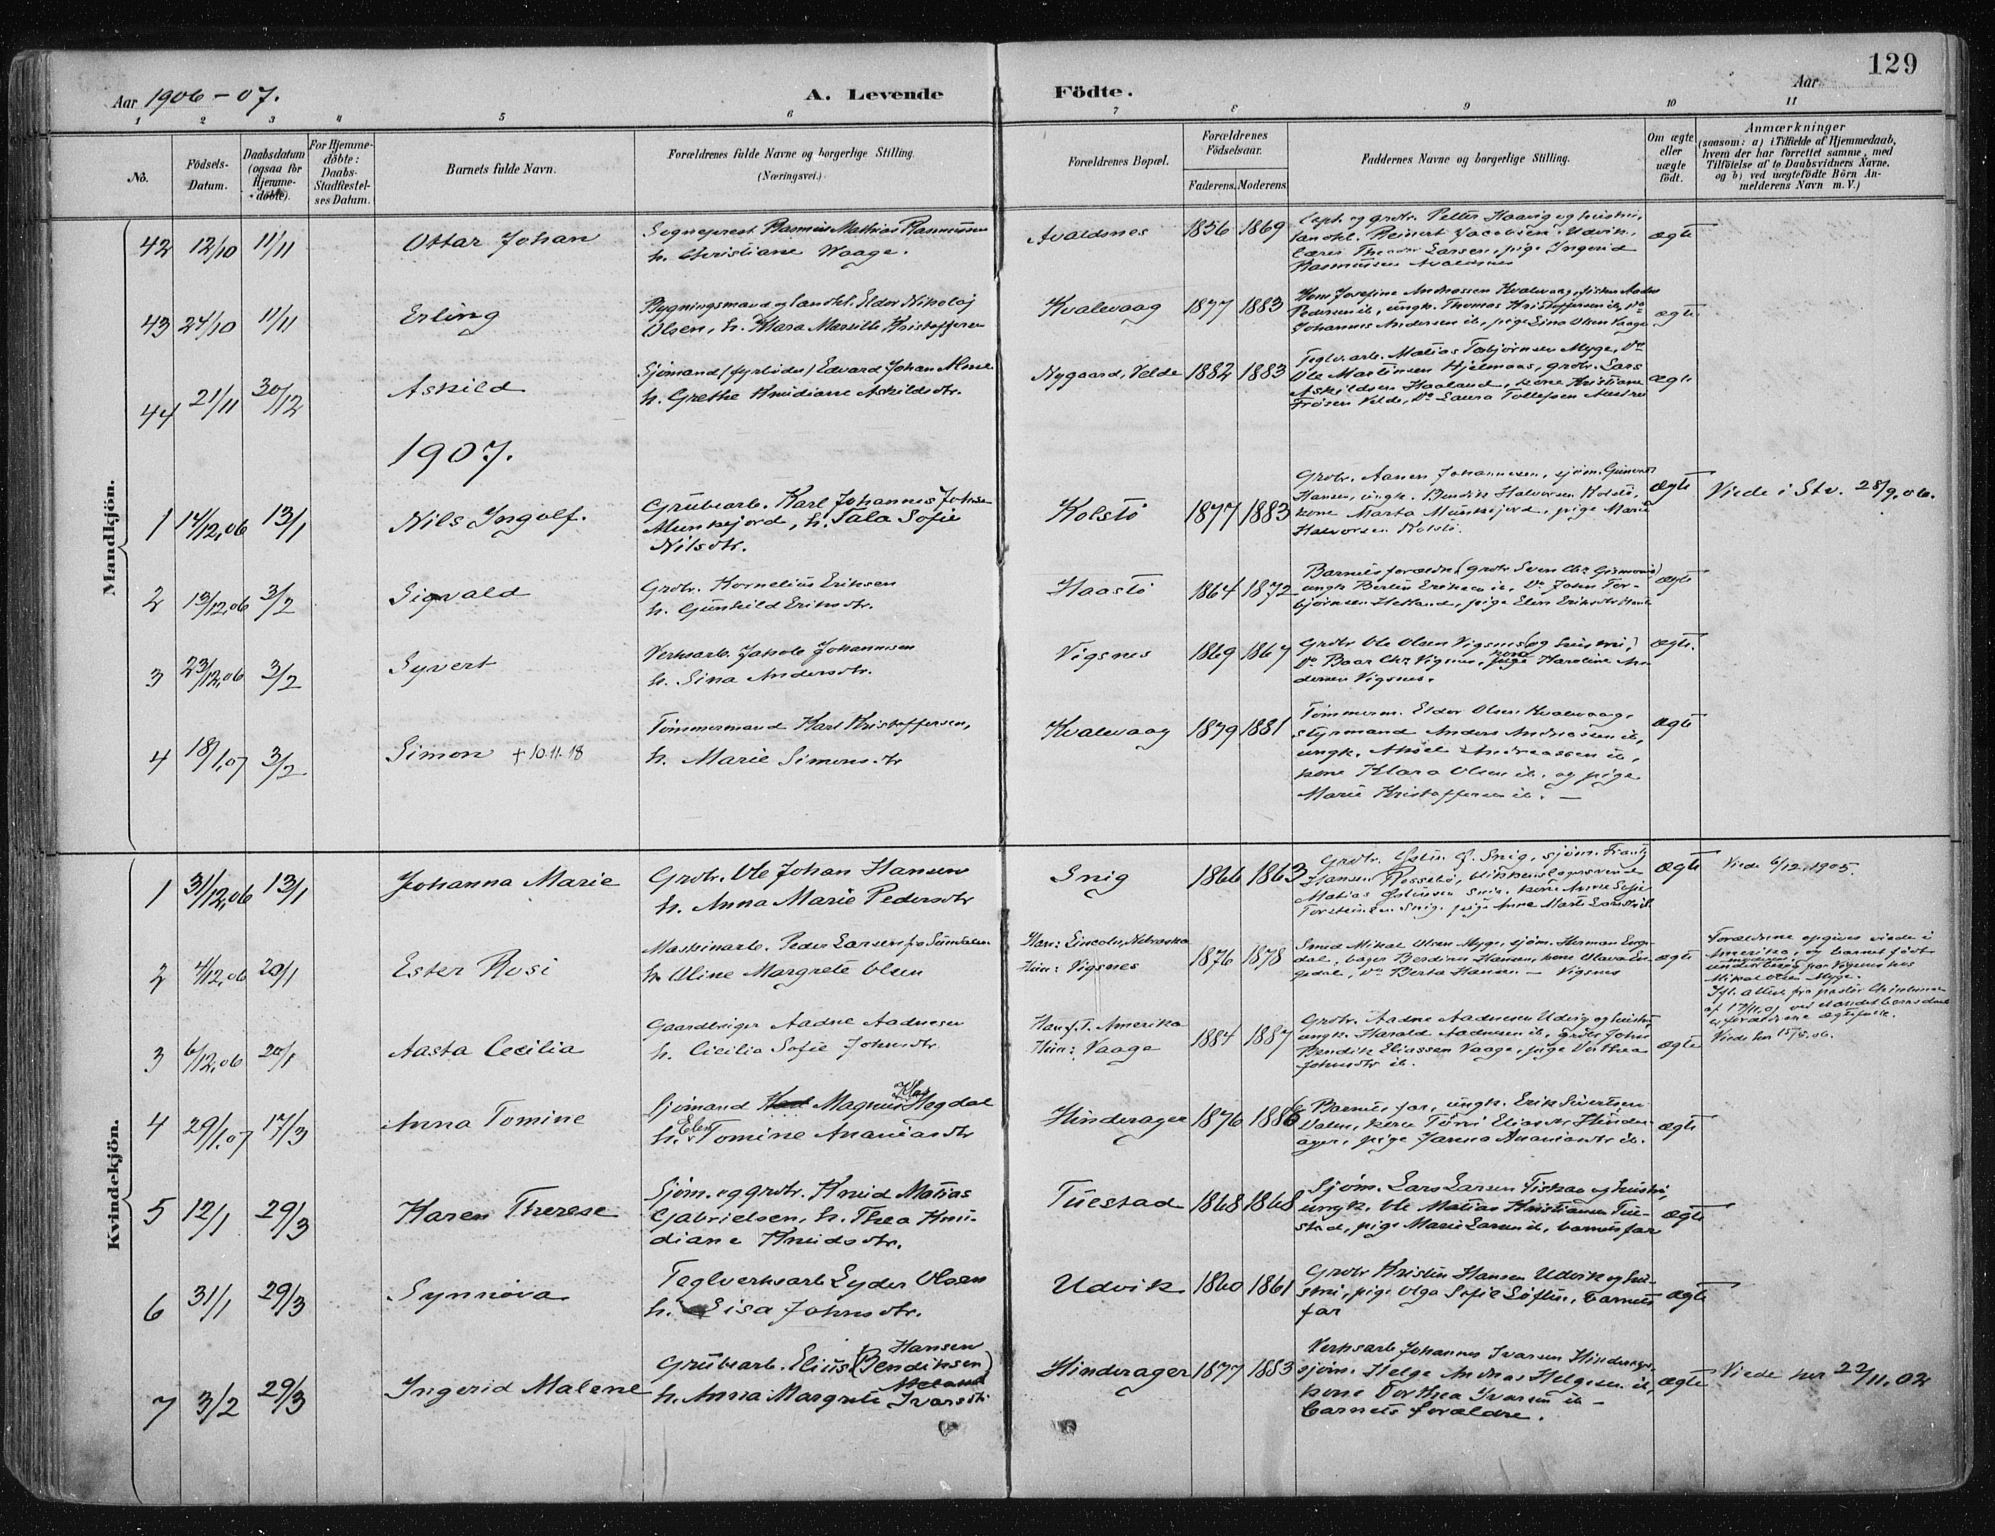 129
Aar 1906-07.
A. Levende Födte.
Aar
1 2 3 4 5 6 7 8 9 10 11
No.
Födsels-Datum.
Daabsdatum (ogsaa for Hjemme-döbte).
For Hjemme-döbte: Daabs-Stadfæstel-ses Datum.
Barnets fulde Navn.
Forældrenes fulde Navne og borgerlige Stilling. (Næringsvei.)
Forældrenes Bopæl.
Forældrenes Födselsaar.
Faderens. Moderens.
Faddernes Navne og borgerlige Stilling.
Om ægte eller uægte födt.
Anmærkninger
(saasom: a) i Tilfælde af Hjemmedaab, hvem der har forrettet samme, med Tilföielse af to Daabsvidners Navne, og b) ved uægtefödte Börn An-melderens Navn m. V.)
Mandkjön.
42 12/10 11/11 Ottar Johan
Sogneprest Rasmus Mathias Rasmussen
h. Christiane Waage.
Avaldsnes 1856 1869
Petter Haavig og hustru,
Reinert Jacobsen Udvik,
Larsen, pige Ingerid
Rasmussen Avaldsnes
ægte
43 24/10 11/11 Erling
Bygningsmand og landhl. Eldor Nikolaj
Olsen, h. Klara Marselle Kristoffersen
Kvalevaag 1877 1883
Josefine Andreassen Kvalevaag,
Pedersen ib, ungk. Thomas Kristoffersen ib, do
Johannes Andersen ib, pige Lina Olsen Vaage.
ægte
44 21/11 30/12 Askild
Sjömand (fyrböder) Edvard Johan
h. Grethe Knudiane Askildsdtr.
Nygaard, Velde 1882 1883
Teglv.arb. Matias Torbjørnsen Myge, do
Ole Martinsen Hjelmaas, grdbr. Lars
Askildsen Haaland, kone Kristiane
Velde, do Laura Tollefsen
ægte
1907.
1 14/12,06 13/1 Nils Ingolf.
Grubearb. Karl Johannes Johnsen
Munkejord, h. Tala Sofie
Nilsdtr.
Kolstö 1877 1883
Grdbr. Aanen Johannesen, sjöm.
Hansen, ungk. Bendik Halvorsen Kolstö,
kone Marta Munkejord, pige Marie
Halvorsen Kolstö.
ægte
Viede i Stv. 28/9.06.
2 13/12,06 3/2 Sigvald
Grdbr. Kornelius Eriksen
h. Gunhild Eriksdtr.
Haastö 1864 1872
Barnets forældre (grdbr Sven Chr.
ungk. Bertin Eriksen ib, do John Tor-
björnsen Hetland, pige Elen Eriksdtr
ægte
3 23/12,06 3/2 Syvert
Verksarb. Jakob Johannesen
h. Sina Andersdtr.
Vigsnes 1869 1867
Grdbr Ole Olsen Vigsnes (og hustru)
do Baar Chr. Vigsnes, kone Karoline An-
dersen Vigsnes.
ægte.
4 18/1,07 3/2 Simon + 10.11.18
Tömmermand Karl Kristoffersen,
h. Marie Simonsdtr
Kvalevaag 1879 1881
Tömmerm. Eldor Olsen Kvalevaag,
styrmand Anders Andreassen ib,
ungk. Andreassen ib,
kone Klara Olsen ib, og pige
Marie Kristoffersen ib. —
ægte
Kvindekjön.
1 31/12,06 13/1 Johanna Marie
Grdbr. Ole Johan Hansen
h. Anna Marie Pedersdtr
Snig 1866 1863
Grdbr. Östen Snig, sjöm. Frantz
Hansen
Matias Östensen Snig, kone Anne Sofie
Torsteinsen Snig, pige Anne Marte
ægte
Viede 6/12 1905.
2 4/12,06 20/1 Ester Rosi
Maskinarb. Peder Larsen fra
h. Oline Margrete Olsen
Han: Lincoln, Nebraska
Hun: Vigsnes
1876 1878
Smed Mikal Olsen Myge, sjöm. Herman Enge-
dal, bager Berdines Hansen, kone Olava En-
gedal, do Berta Hansen — Vigsnes
ægte
Forældrene opgives viede i
Amerika, og barnet födt
under besög fra Vigsnes hos
Mikal Olsen Myge.
3 6/12,06 20/1 Aasta Cecilia
Gaardbruger Aadne Aadnesen
h. Cecilia Sofie Johnsdtr
Han f. T. Amerika
Hun: Vaage
1884 1887
Grdbr. Aadne Aadnesen Udvig og hustru,
ungk. Harald Aadnesen ib, Grdbr John
Bendik Eliassen Vaage, pige Dorthea
Johnsdtr ib.
ægte
Viede her 15/8.06.
4 29/1,07 17/3 Anna Tomine
Sjömand Magnus Hegdal
h. Elen Tomine Ananiasdtr
Hinderager 1876 1886
Barnets far, ungk. Erik Sivertsen
Valen, kone Elias dtr Hinder-
ager, pige Ananiasdtr ib.
ægte
5 12/1 29/3 Karen Therese
Sjöm. og grdbr. Knud Matias
Gabrielsen, h. Thea Knu-
diane Knudsdtr.
Tuestad 1868 1868
Sjöm. Lars Larsen Fiskaa og hustru,
ungk. Ole Matias Kristiansen Tue-
stad, pige Marie Larsen ib, barnets far
ægte
6 31/1 29/3 Synnöva
Teglverksarb Eyder Olsen
h. Lisa Johnsdtr.
Udvik 1860 1861
Grdbr Kristen Hansen Udvik og hu-
stru, pige Olga Sofie Löften, barnets
far
ægte
7 3/2 29/3 Ingerid Malene
Grubearb. Elius Hansen (Bendiksen)
h. Anna Margrete Ivarsdtr
Hinderager 1877 1883
Verksarb Johannes Ivarsen Hinderager,
sjöm. Helge Andreas Helgesen ib,
kone Dorthea Ivarsen ib —
barnets forældre.
ægte
Viede her 22/11.02